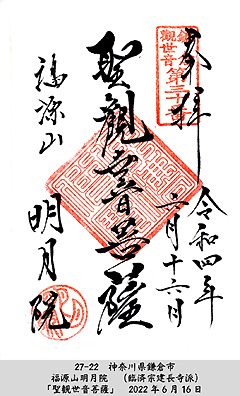 奉拝
令和四年
六月十六月
聖観世音菩薩
福源山
明月院
27-22　神奈川県鎌倉市
福源山明月院　（臨済宗建長寺派）
「聖観世音菩薩」　2022年6月16日